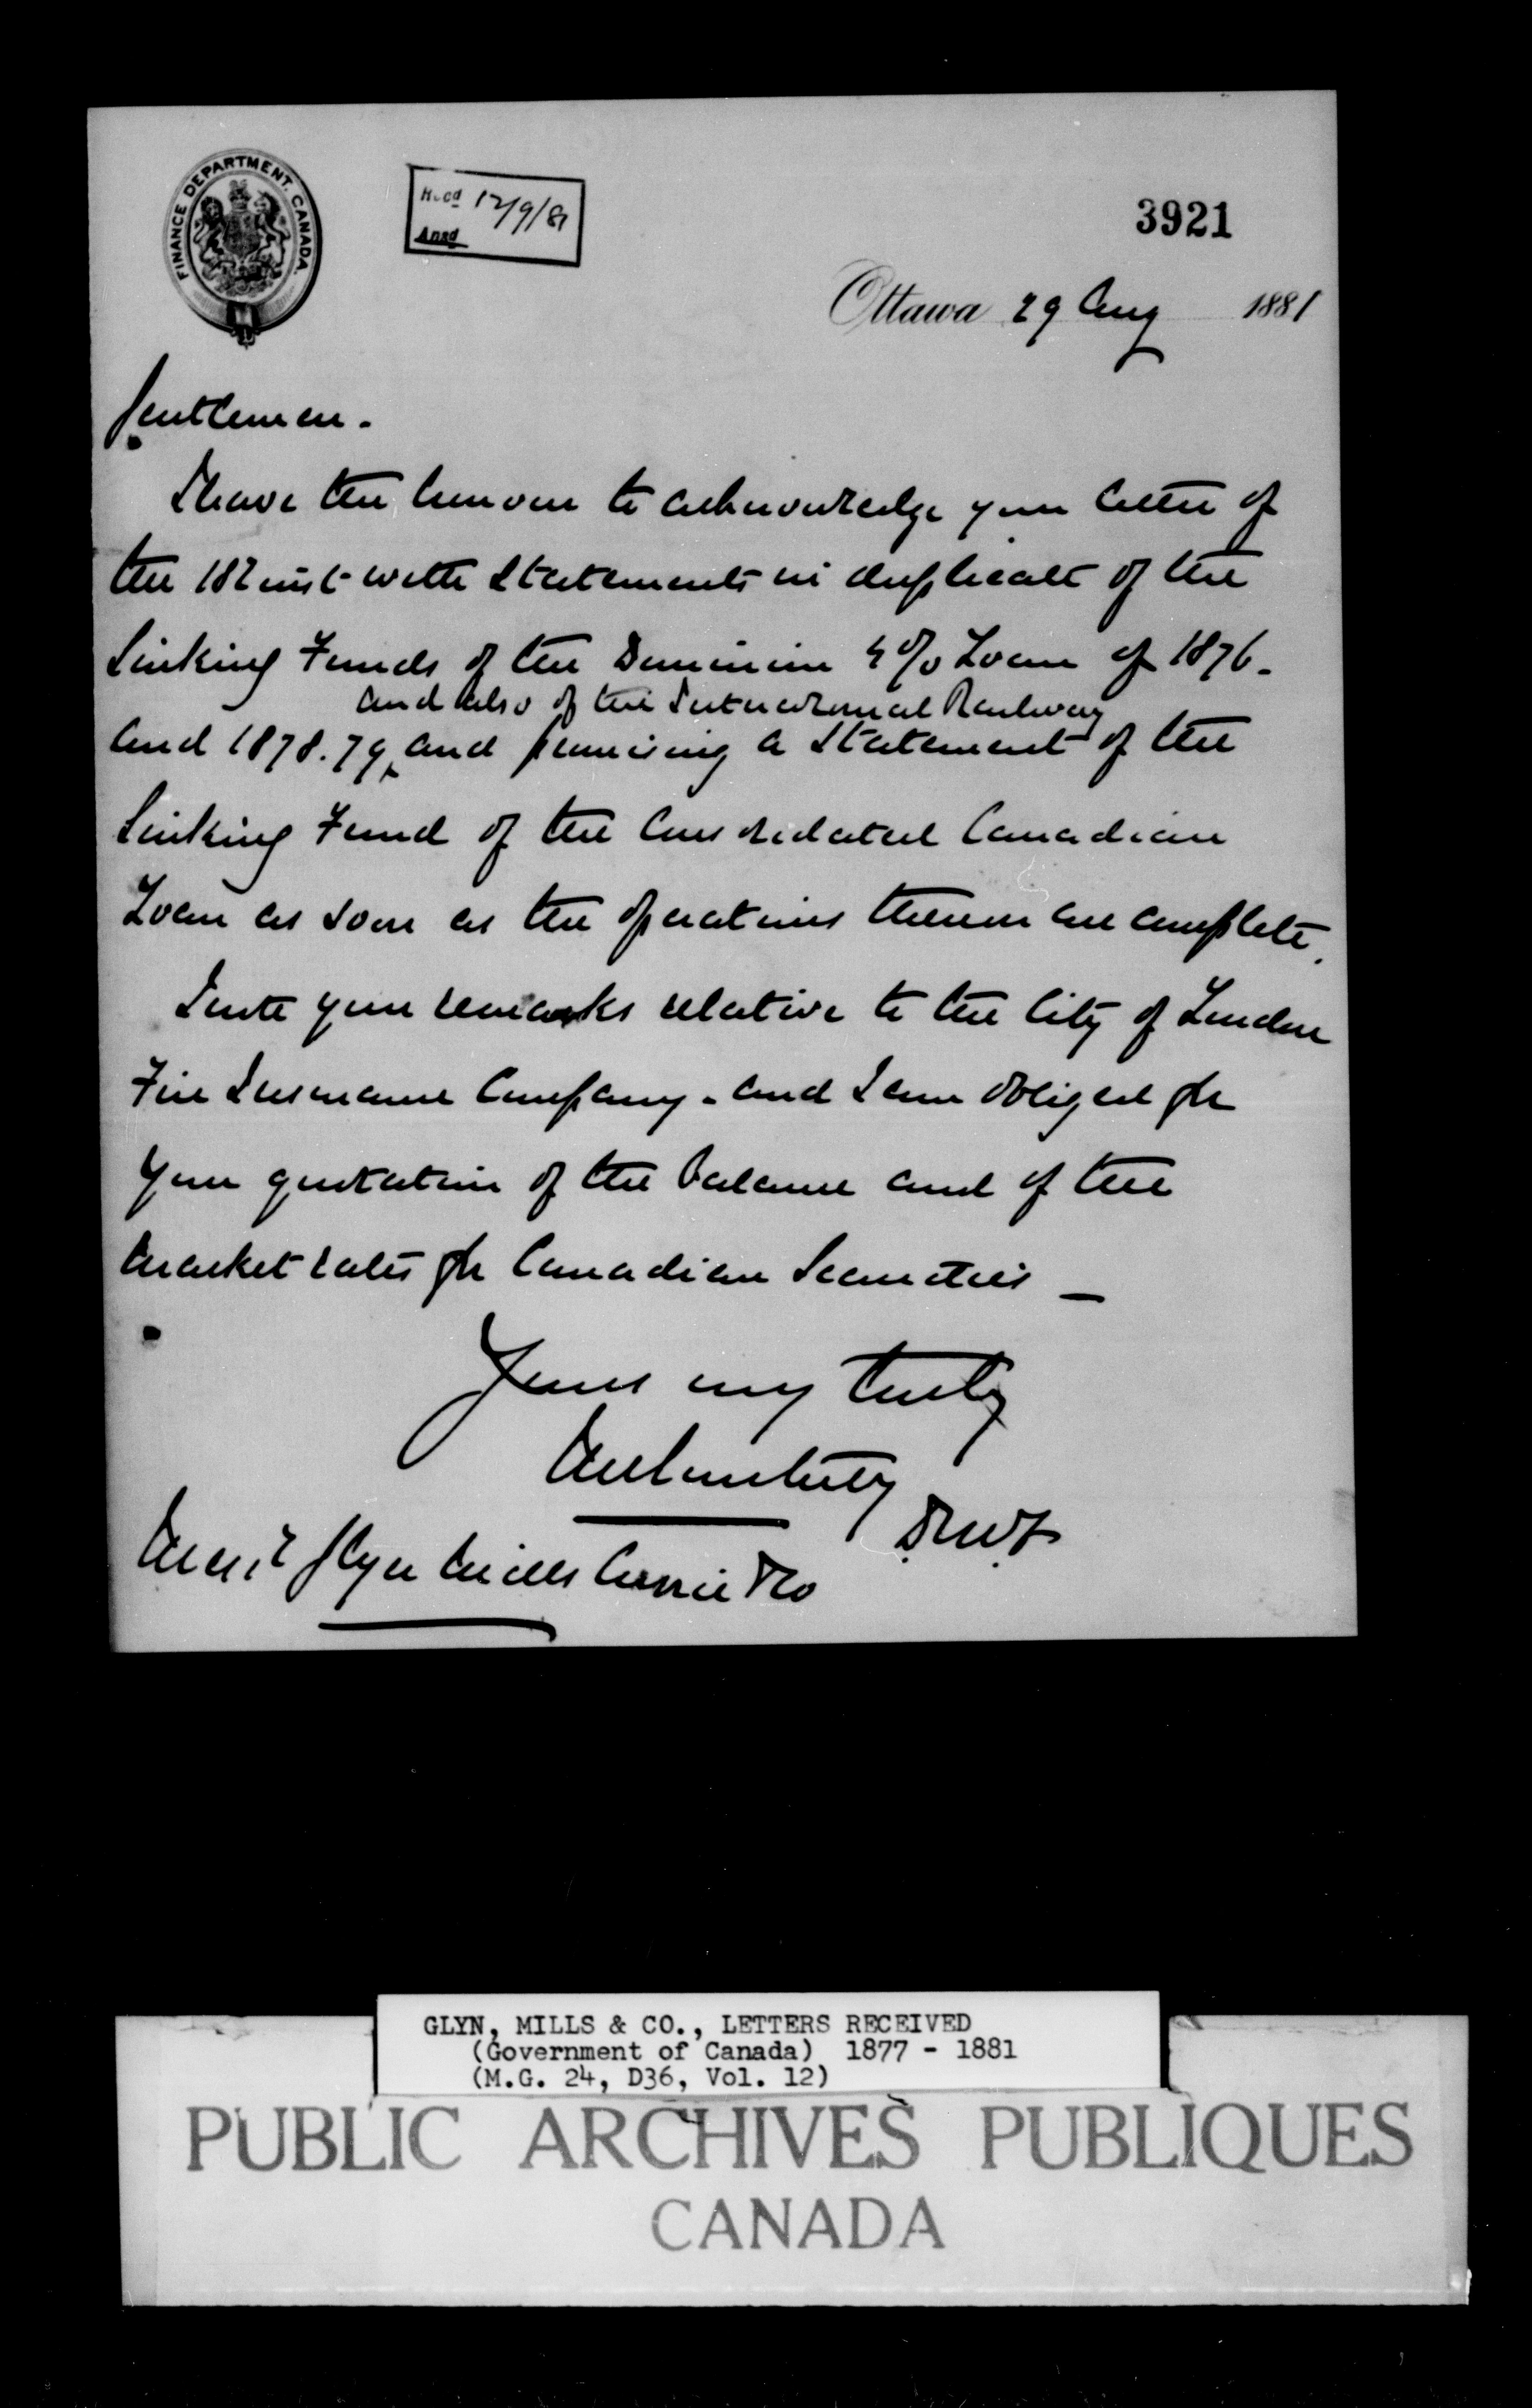 FINANCE DEPARTMENT. CANADA.
Recd 12/9/81
Ansd
3921
Ottawa 29 Aug 1881
Gentlemen.
I have the honour to acknowledge your letter of
the 18th inst with statements in duplicate of the
Sinking Funds of the Dominion 4% Loan of 1876.
and also of the Intercolonial Railway
and 1878.79, and promising a statement of the
Sinking Fund of the Consolidated Canadian
Loan as soon as the operations thereon are complete.
I note your remarks relative to the City of London
Fire Insurance Company. and I am obliged for
your quotation of the balance and of the
market rates for Canadian Securities _
Yours very truly
Mess Glyn Mills Currie & Co
GLYN, MILLS & CO., LETTERS RECEIVED
(Government of Canada) 1877 - 1881
(M.G. 24, D36, Vol. 12)
PUBLIC ARCHIVES PUBLIQUES
CANADA